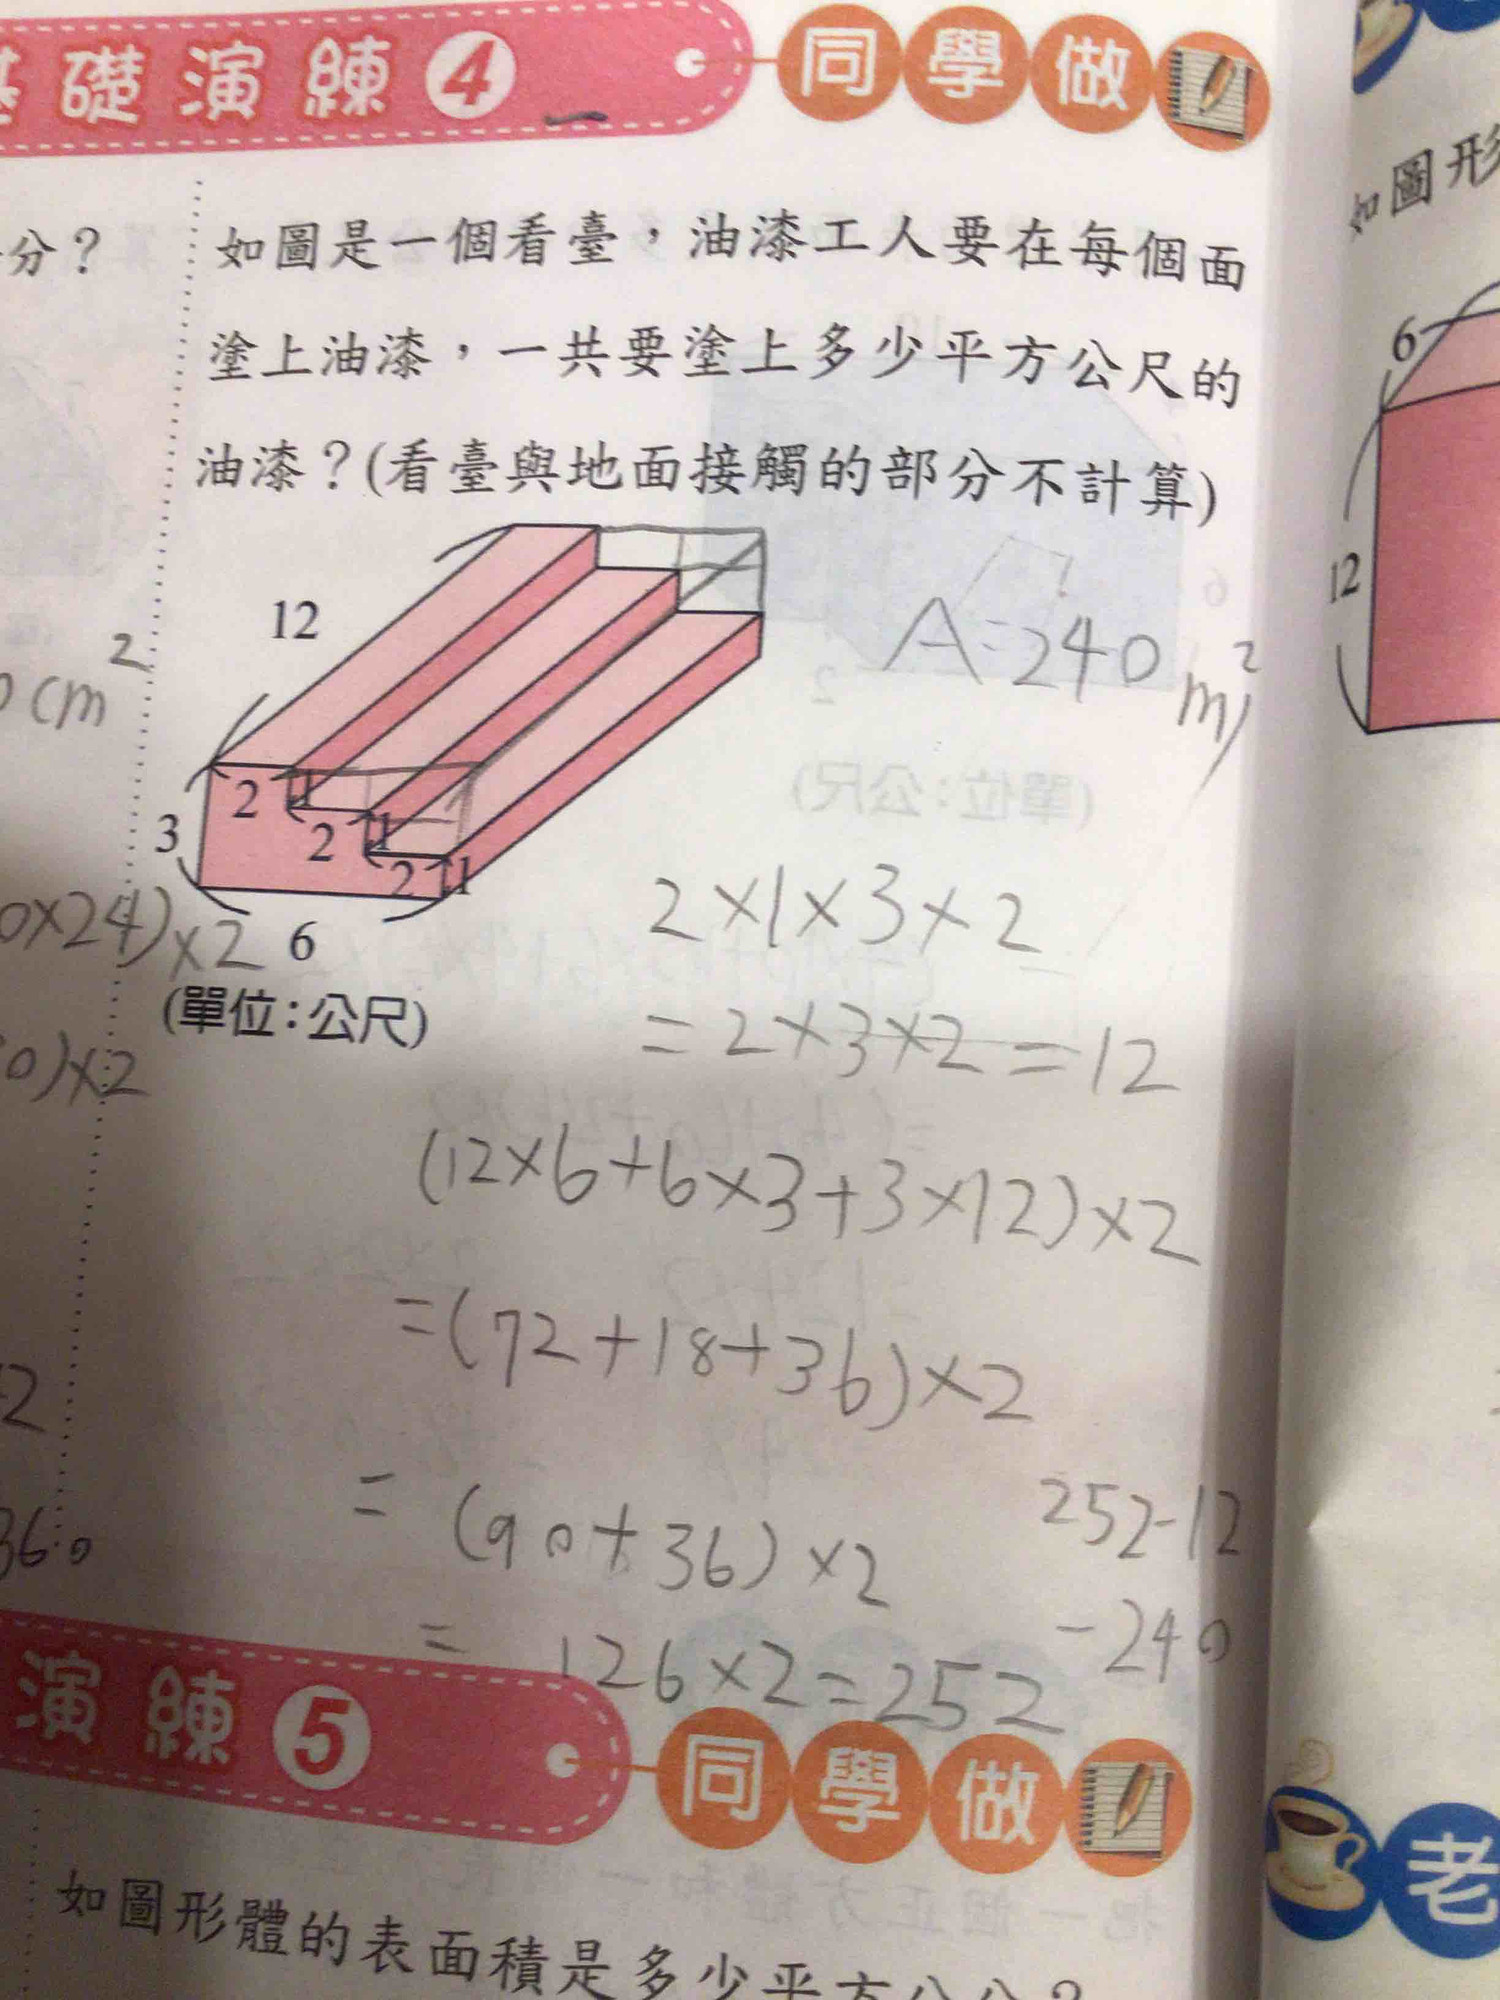 基礎演練4
同學做
分？
如圖是一個看臺，油漆工人要在每個面
塗上油漆，一共要塗上多少平方公尺的
油漆？(看臺與地面接觸的部分不計算)
12
3
2
1
2
1
2
1
6
(單位：公尺)
A=240m²
cm²
0×24)×2
0)×2
2
360
2×1×3×2
=2×3×2=12
(12×6+6×3+3×12)×2
=(72+18+36)×2
=(90+36)×2
=126×2=252
252-12
-240
演練5
同學做
如圖形體的表面積是多少平方公
如圖形
6
12
老